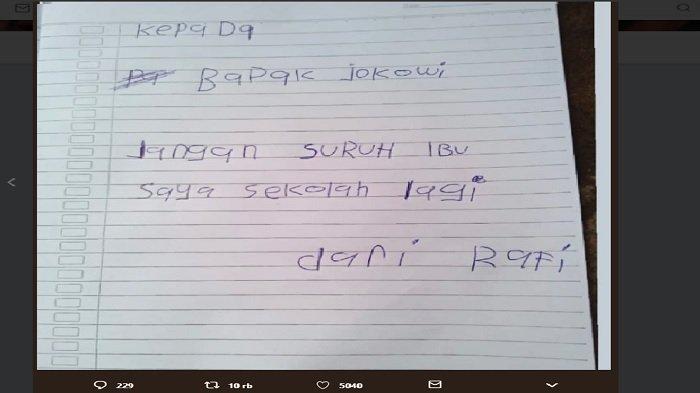 Kepada
Bapak jokowi
Jangan SURUH IBU
saya sekolah lagi
dari Rafi
229
10 rb
5040